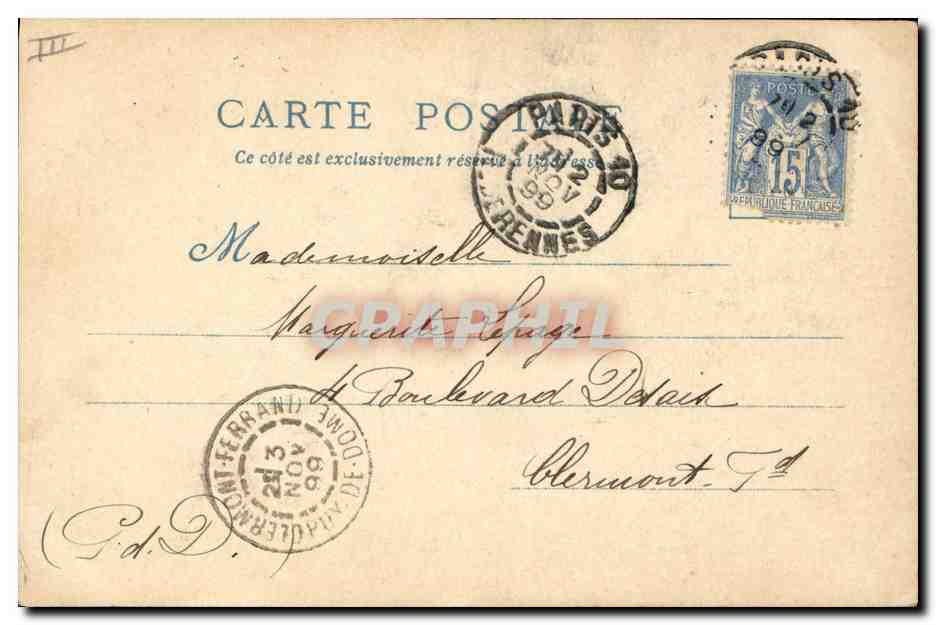 III
CARTE POSTALE
Ce côté est exclusivement réservé à l'adresse
PARIS 10
2
NOV
99
DE RENNES
PARIS 10
2
99
POSTE
15
REPUBLIQUE FRANÇAISE
Mademoiselle
CRAPHIL
Marguerite Lepage
4 Boulevard Desaix
Clermont-Fd
(P. d. D.)
CLERMONT-FERRAND
PUY-DE-DOME
2E
3
NOV
99